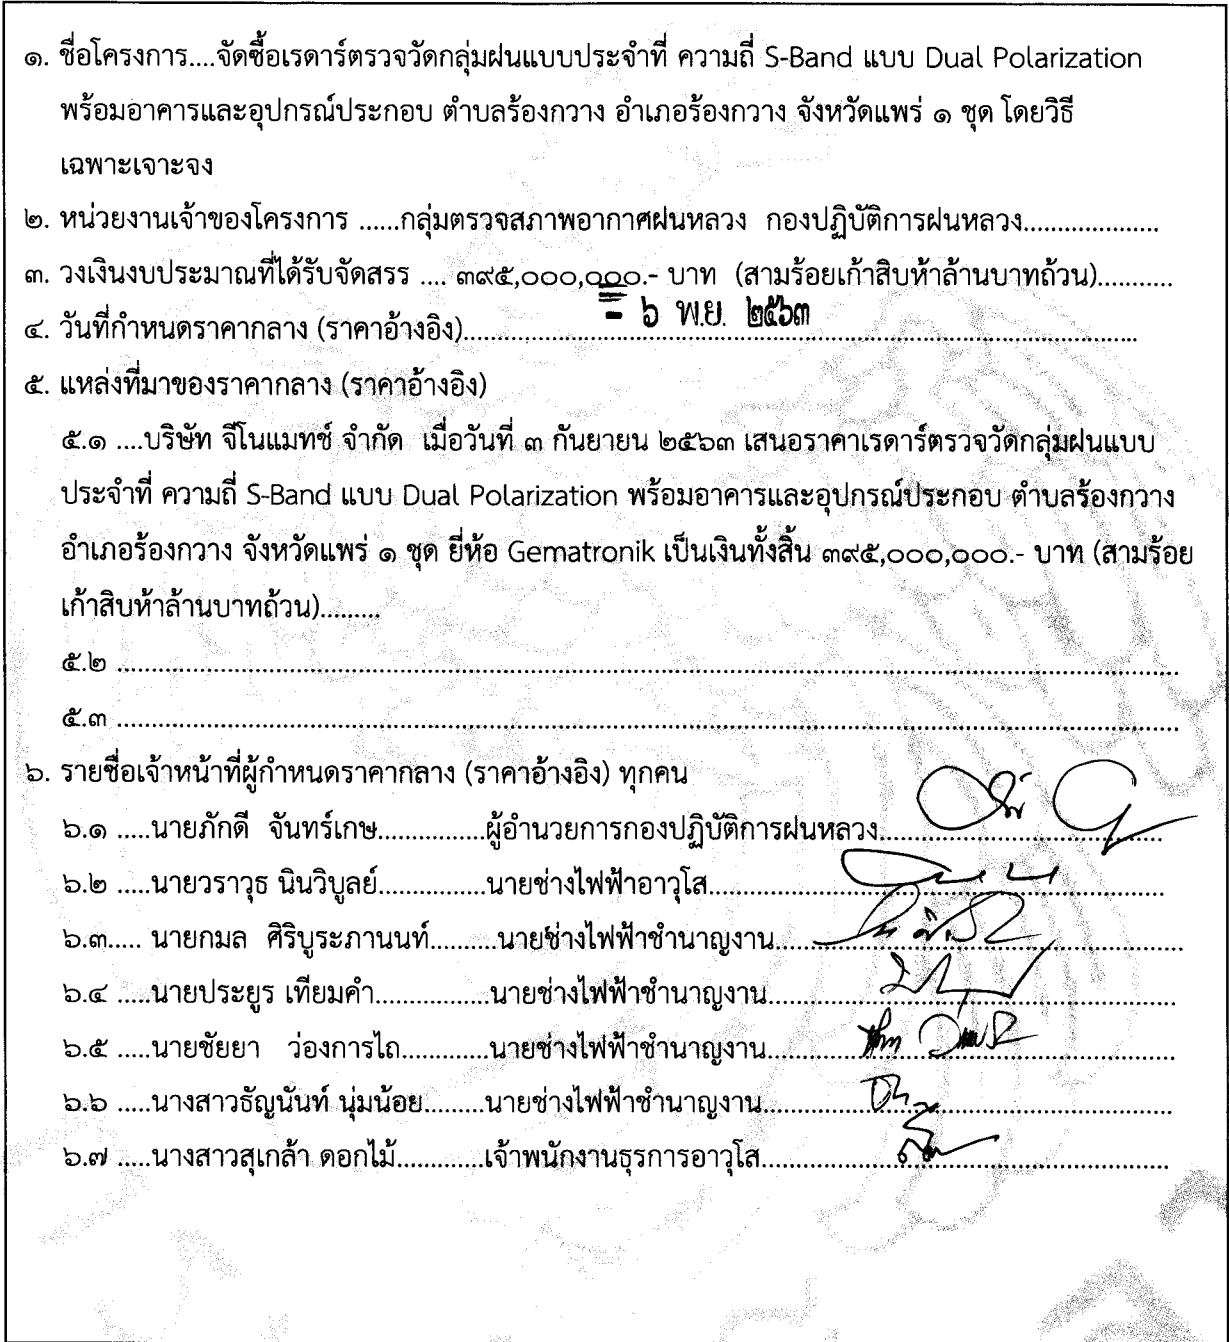 ๑. ชื่อโครงการ....จัดซื้อเรดาร์ตรวจวัดกลุ่มฝนแบบประจำที่ ความถี่ S-Band แบบ Dual Polarization
พร้อมอาคารและอุปกรณ์ประกอบ ตำบลร้องกวาง อำเภอร้องกวาง จังหวัดแพร่ ๑ ชุด โดยวิธี
เฉพาะเจาะจง
๒. หน่วยงานเจ้าของโครงการ ......กลุ่มตรวจสภาพอากาศฝนหลวง กองปฏิบัติการฝนหลวง....................
๓. วงเงินงบประมาณที่ได้รับจัดสรร .... ๓๙๕,๐๐๐,๐๐๐.- บาท (สามร้อยเก้าสิบห้าล้านบาทถ้วน)...........
๔. วันที่กำหนดราคากลาง (ราคาอ้างอิง)....................- ๖ พ.ย. ๒๕๖๓....................
๕. แหล่งที่มาของราคากลาง (ราคาอ้างอิง)
๕.๑ ....บริษัท จีโนแมทช์ จำกัด เมื่อวันที่ ๓ กันยายน ๒๕๖๓ เสนอราคาเรดาร์ตรวจวัดกลุ่มฝนแบบ
ประจำที่ ความถี่ S-Band แบบ Dual Polarization พร้อมอาคารและอุปกรณ์ประกอบ ตำบลร้องกวาง
อำเภอร้องกวาง จังหวัดแพร่ ๑ ชุด ยี่ห้อ Gematronik เป็นเงินทั้งสิ้น ๓๙๕,๐๐๐,๐๐๐.- บาท (สามร้อย
เก้าสิบห้าล้านบาทถ้วน).........
๕.๒ ....................
๕.๓ ....................
๖. รายชื่อเจ้าหน้าที่ผู้กำหนดราคากลาง (ราคาอ้างอิง) ทุกคน
๖.๑ .....นายภักดี จันทร์เกษ................ผู้อำนวยการกองปฏิบัติการฝนหลวง....................
๖.๒ .....นายวราวุธ นินวิบูลย์................นายช่างไฟฟ้าอาวุโส....................
๖.๓..... นายกมล ศิริบูระภานนท์..........นายช่างไฟฟ้าชำนาญงาน....................
๖.๔ .....นายประยูร เทียมคำ.................นายช่างไฟฟ้าชำนาญงาน....................
๖.๕ .....นายชัยยา ว่องการไถ.............นายช่างไฟฟ้าชำนาญงาน....................
๖.๖ .....นางสาวธัญนันท์ นุ่มน้อย.........นายช่างไฟฟ้าชำนาญงาน....................
๖.๗ .....นางสาวสุเกล้า ดอกไม้.............เจ้าพนักงานธุรการอาวุโส....................